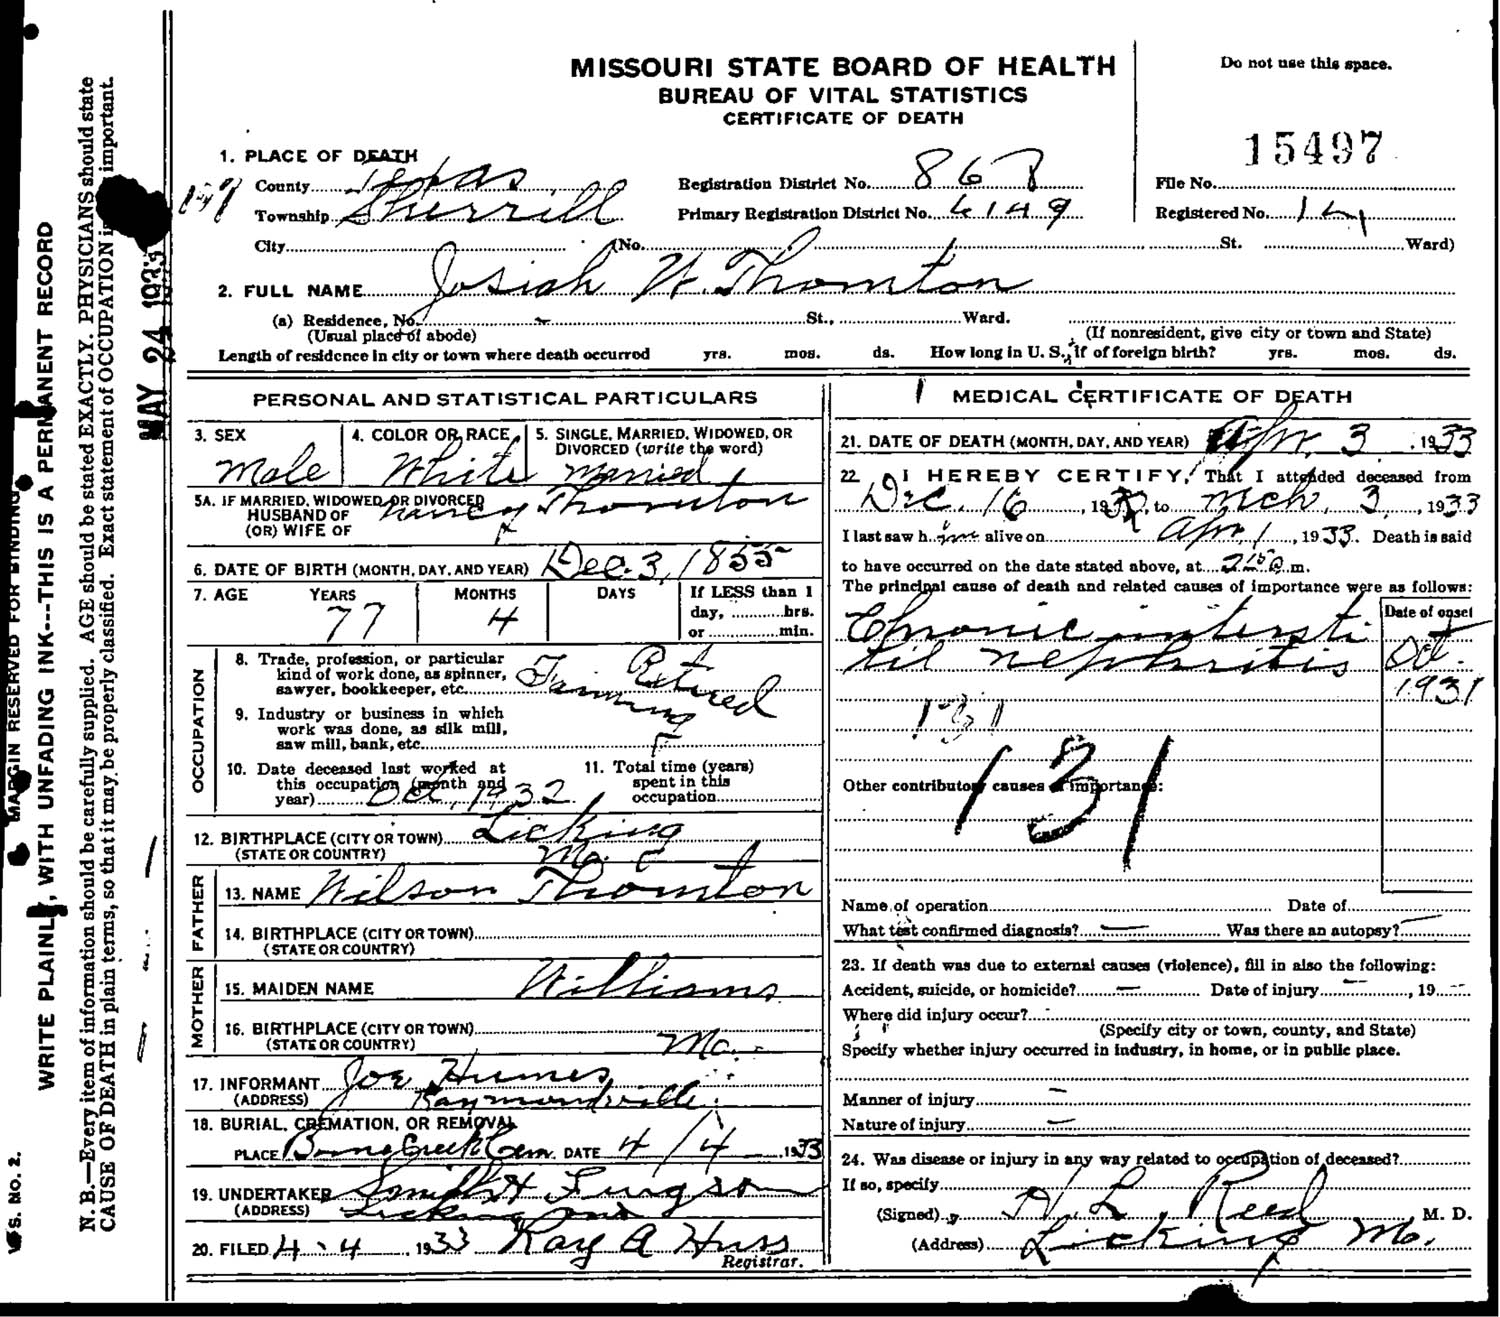 MISSOURI STATE BOARD OF HEALTH
BUREAU OF VITAL STATISTICS
CERTIFICATE OF DEATH
Do not use this space.
15497
1. PLACE OF DEATH
County Texas
Township Sherrill
City (No. St. Ward)
Registration District No. 868
Primary Registration District No. 6149
File No.
Registered No. 14
2. FULL NAME Josiah W. Thornton
(a) Residence, No. St., Ward.
(Usual place of abode) (If nonresident, give city or town and State)
Length of residence in city or town where death occurred yrs. mos. ds. How long in U. S., if of foreign birth? yrs. mos. ds.
PERSONAL AND STATISTICAL PARTICULARS
3. SEX
Male
4. COLOR OR RACE
White
5. SINGLE, MARRIED, WIDOWED, OR
DIVORCED (write the word)
Married
5A. IF MARRIED, WIDOWED, OR DIVORCED
HUSBAND OF Nancy Thornton
(OR) WIFE OF
6. DATE OF BIRTH (MONTH, DAY, AND YEAR) Dec. 3, 1855
7. AGE YEARS MONTHS DAYS If LESS than 1
day, hrs.
or min.
77 4
OCCUPATION
8. Trade, profession, or particular
kind of work done, as spinner,
sawyer, bookkeeper, etc. Farming Retired
9. Industry or business in which
work was done, as silk mill,
saw mill, bank, etc.
10. Date deceased last worked at
this occupation (month and
year) Oct, 1932
11. Total time (years)
spent in this
occupation
12. BIRTHPLACE (CITY OR TOWN) Licking
(STATE OR COUNTRY) Mo.
FATHER
13. NAME Wilson Thornton
14. BIRTHPLACE (CITY OR TOWN)
(STATE OR COUNTRY)
MOTHER
15. MAIDEN NAME Williams
16. BIRTHPLACE (CITY OR TOWN)
(STATE OR COUNTRY) Mo.
17. INFORMANT Joe Humes
(ADDRESS) Raymondville
18. BURIAL, CREMATION, OR REMOVAL
PLACE Boone Creek Cem. DATE 4/4 1933
19. UNDERTAKER Smith & Furgson
(ADDRESS) Licking
20. FILED 4-4, 1933 Ray A Huss
Registrar.
MEDICAL CERTIFICATE OF DEATH
21. DATE OF DEATH (MONTH, DAY, AND YEAR) Apr. 3, 1933
22. I HEREBY CERTIFY, That I attended deceased from
Dec. 16, 1932, to Mch. 3, 1933
I last saw him alive on Apr 1, 1933. Death is said
to have occurred on the date stated above, at m.
The principal cause of death and related causes of importance were as follows:
Date of onset
Chronic intersti
til nephritis
Oct.
1931
131
131
Other contributory causes of importance:
Name of operation Date of
What test confirmed diagnosis? — Was there an autopsy? —
23. If death was due to external causes (violence), fill in also the following:
Accident, suicide, or homicide? — Date of injury —, 19 —
Where did injury occur? -
(Specify city or town, county, and State)
Specify whether injury occurred in industry, in home, or in public place.
Manner of injury —
Nature of injury —
24. Was disease or injury in any way related to occupation of deceased?
If so, specify
(Signed) H. L. Reed, M. D.
(Address) Licking Mo.
MAY 24 1933
N. B.—Every item of information should be carefully supplied. AGE should be stated EXACTLY. PHYSICIANS should state
CAUSE OF DEATH in plain terms, so that it may be properly classified. Exact statement of OCCUPATION is important.
WRITE PLAINLY, WITH UNFADING INK---THIS IS A PERMANENT RECORD
MARGIN RESERVED FOR BINDING
V. S. No. 2.